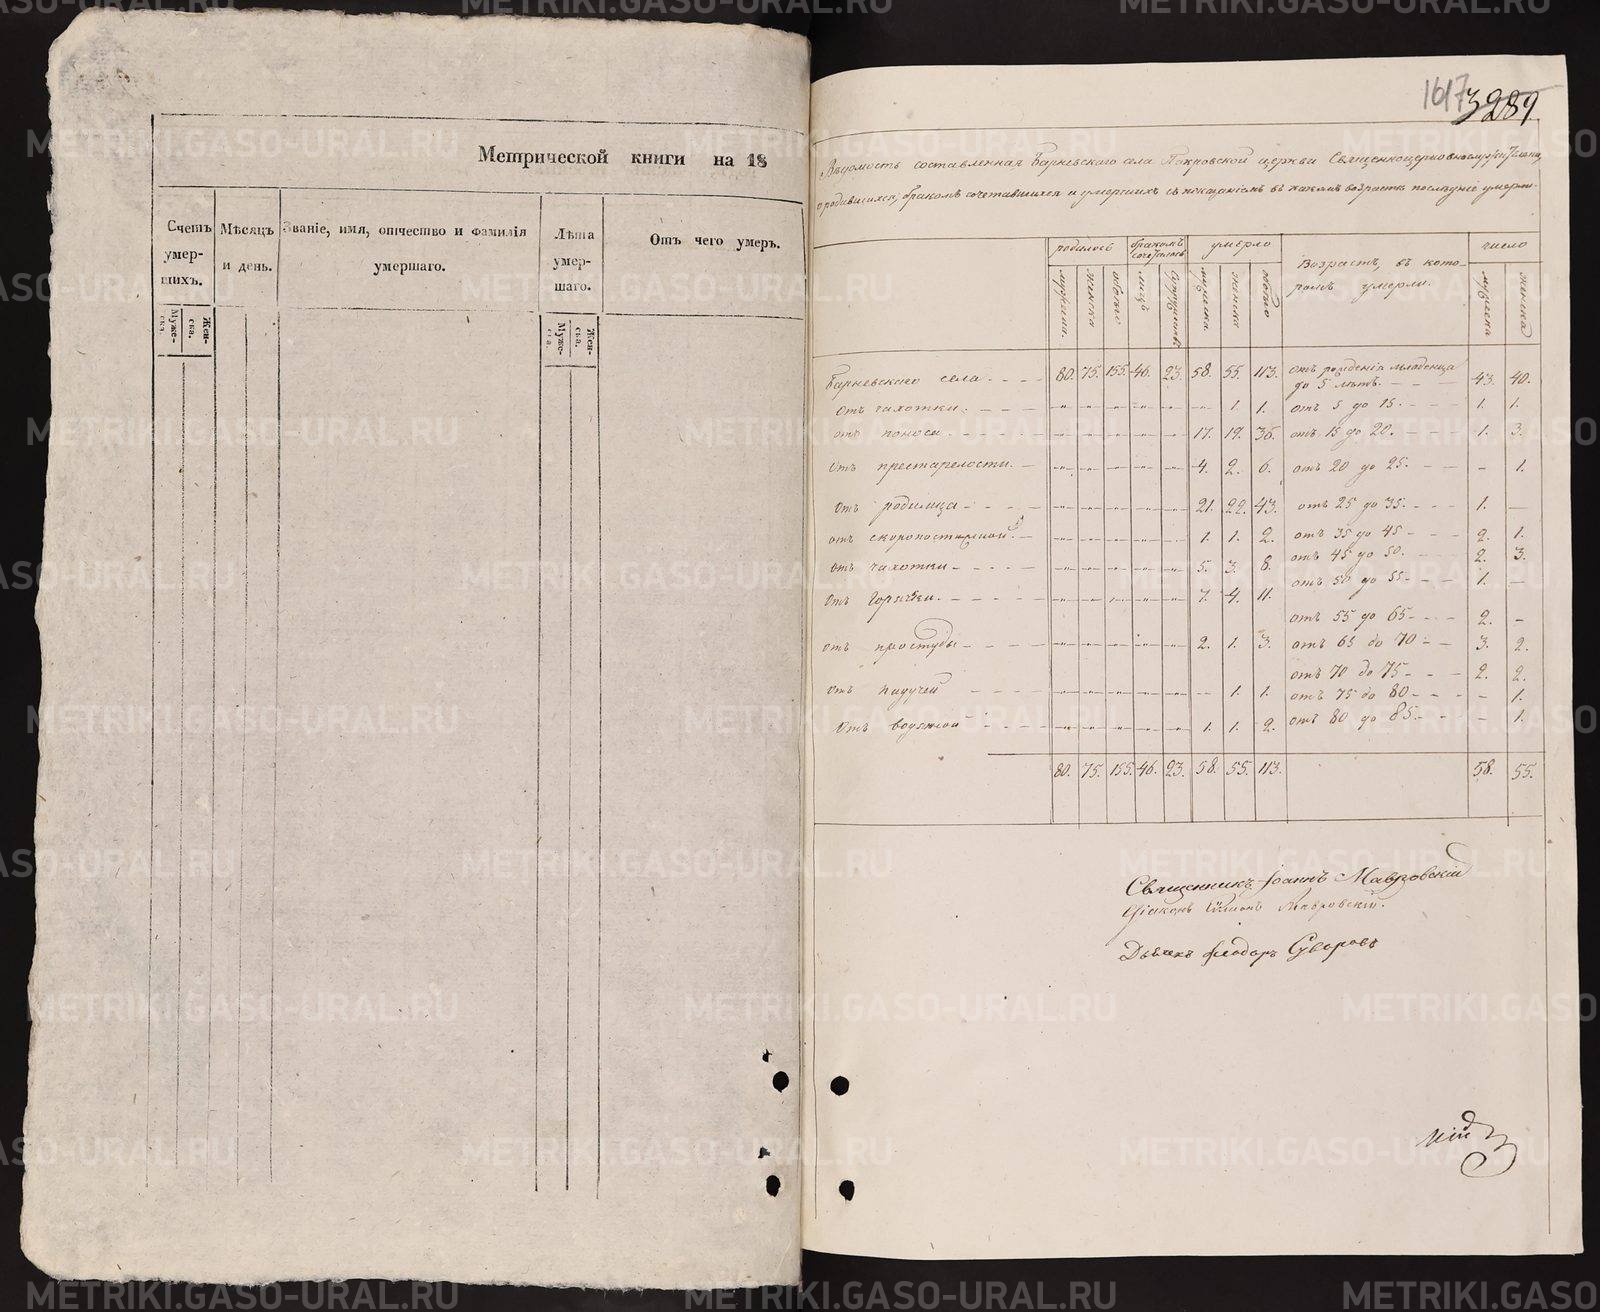 Метрической книги на 18
Счетъ умер- щихъ.
Мѣсяцъ и день.
Званіе, имя, отчество и фамилія умершаго.
Лѣта умер- шаго.
Отъ чего умеръ.
Муже- ска.
Жен- ска.
Муже- ска.
Жен- ска.
1617
3289
Вѣдомость составленная Барневскаго села Покровской церкви Священноцерковнослужителями,
о родившихся, бракомъ сочетавшихся и умершихъ съ показаніемъ въ какомъ возрастѣ
родилось
бракомъ сочеталось
умерло
Возрастъ, въ кото-
ромъ умерли.
число
мужеска
женска
обоего
лицъ
мужеска
женска
обоего
мужеска
женска
Барневскаго села 80. 75. 155. 46. 23. 58. 55. 113. отъ рожденія младенца
до 5 лѣтъ. 43. 40.
отъ чахотки. 1. 1. отъ 5 до 15. 1. 1.
отъ поноса 17. 19. 36. отъ 15 до 20. 1. 3.
отъ престарелости. 4. 2. 6. отъ 20 до 25. - 1.
отъ родимца 21. 22. 43. отъ 25 до 35. 1. -
отъ скоропостижной 1. 1. 2. отъ 35 до 45 2. 1.
отъ 45 до 50. 2. 3.
отъ чахотки 5. 3. 8. отъ 50 до 55 1. -
отъ горячки. 7. 4. 11.
отъ 55 до 65 2. -
отъ простуды 2. 1. 3. отъ 65 до 70 3. 2.
отъ 70 до 75 2. 2.
отъ падучей - 1. 1. отъ 75 до 80 - 1.
отъ водяной 1. 1. 2. отъ 80 до 85 - 1.
80. 75. 155. 46. 23. 58. 55. 113. 58. 55.
Священникъ Іоаннъ Мавровскій
Діаконъ Мавровскій.
Дьячекъ Феодоръ Суворовъ
METRIKI.GASO-URAL.RU